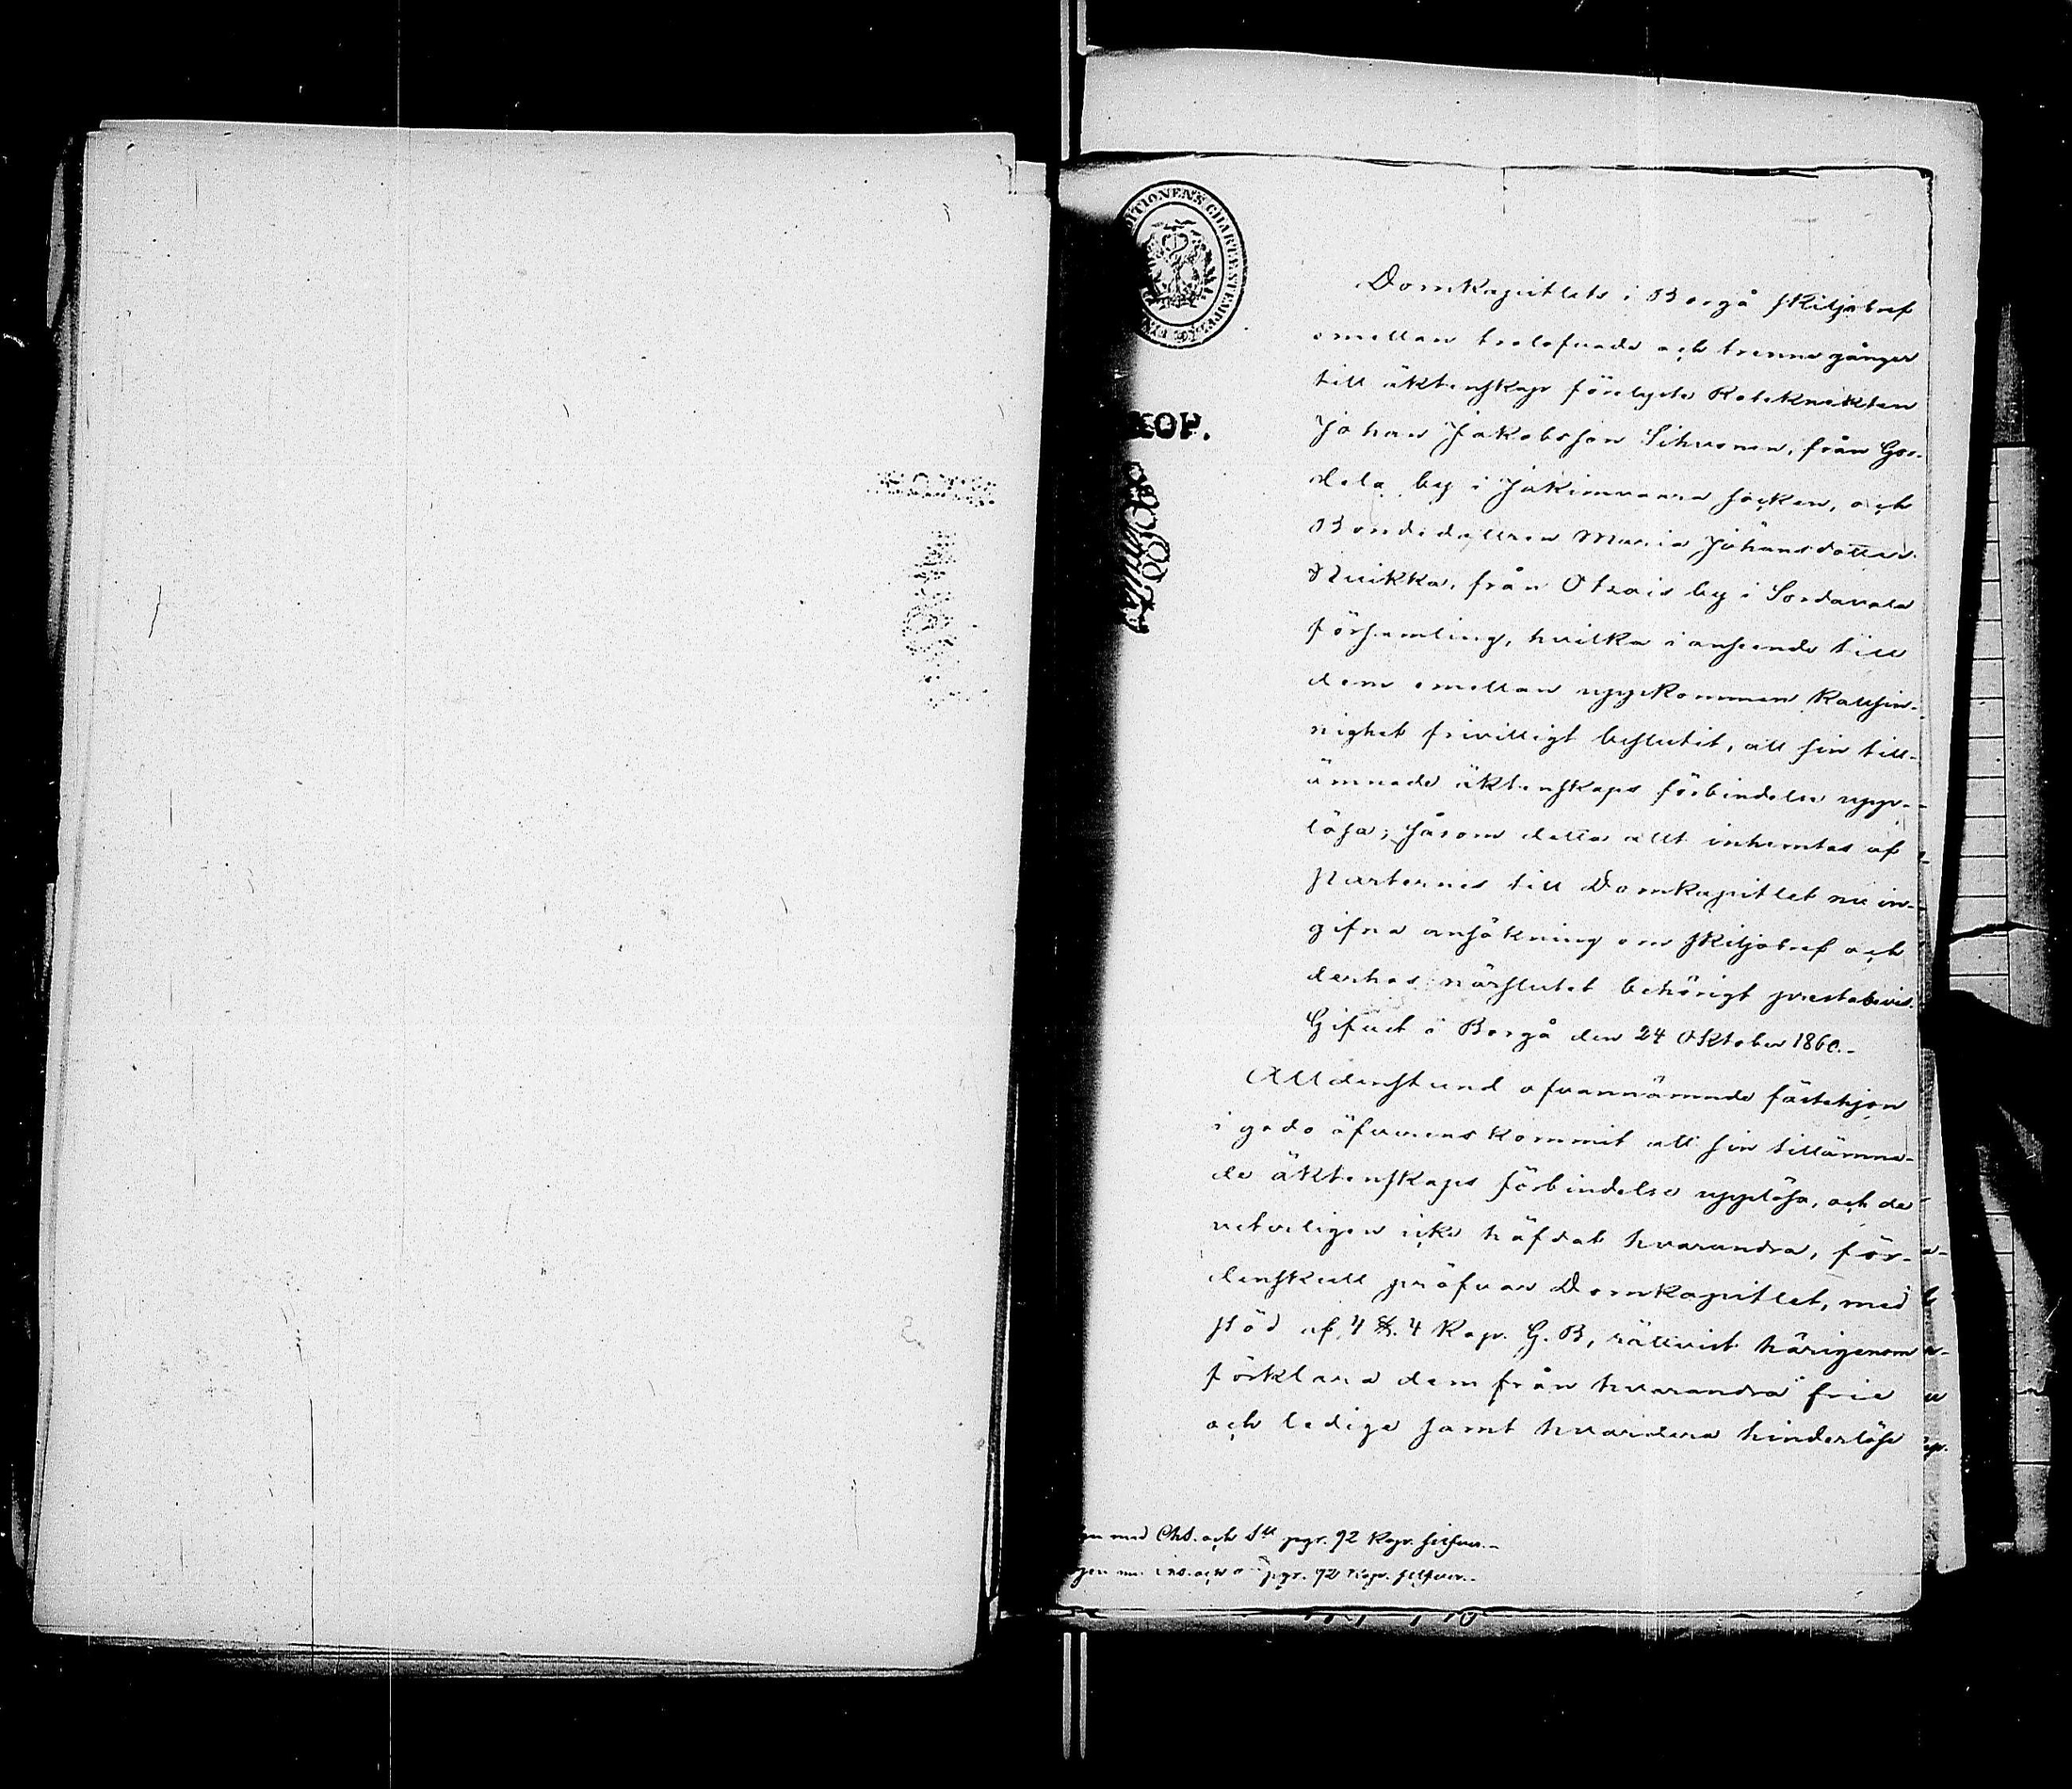 KOP.
Domkapitlets i Borgå skiljobref
emellan trolofvade och trenne gånger
till äktenskap förelyste Roteknekten
Johan Jakobsson Sihvonen, från Gor-
dela by i Jakimvaara socken, och
Bondedottren Maria Johansdotter
Nuikka, från Otrais by i Sordavala
församling, hvilka i anseende till
dem emellan uppkommen kallsin-
nighet frivilligt beslutit, att sin till-
ämnade äktenskaps förbindelse upp-
lösa; såsom detta allt inhemtas af
parternes till Domkapitlet nu in-
gifna ansökning om skiljobref och
derhos närslutet behörigt prestabevis.
Gifvet i Borgå den 24 Oktober 1860.-
Alldenstund ofvannämnde fästehjon
i godo öfverenskommit att sin tillämna-
de äktenskaps förbindelse upplösa, och de
veterligen icke häfdat hvarandra, för-
denskull pröfvar Domkapitlet, med
stöd af 4 §. 4 Kap. G. B, rättvist härigenom
förklara dem från hvarandra frie
och ledige samt hvardera hinderlöse
med Chs. och pgr. 92 Kop. silfver.-
pgr. 92 Kop. silfver.-